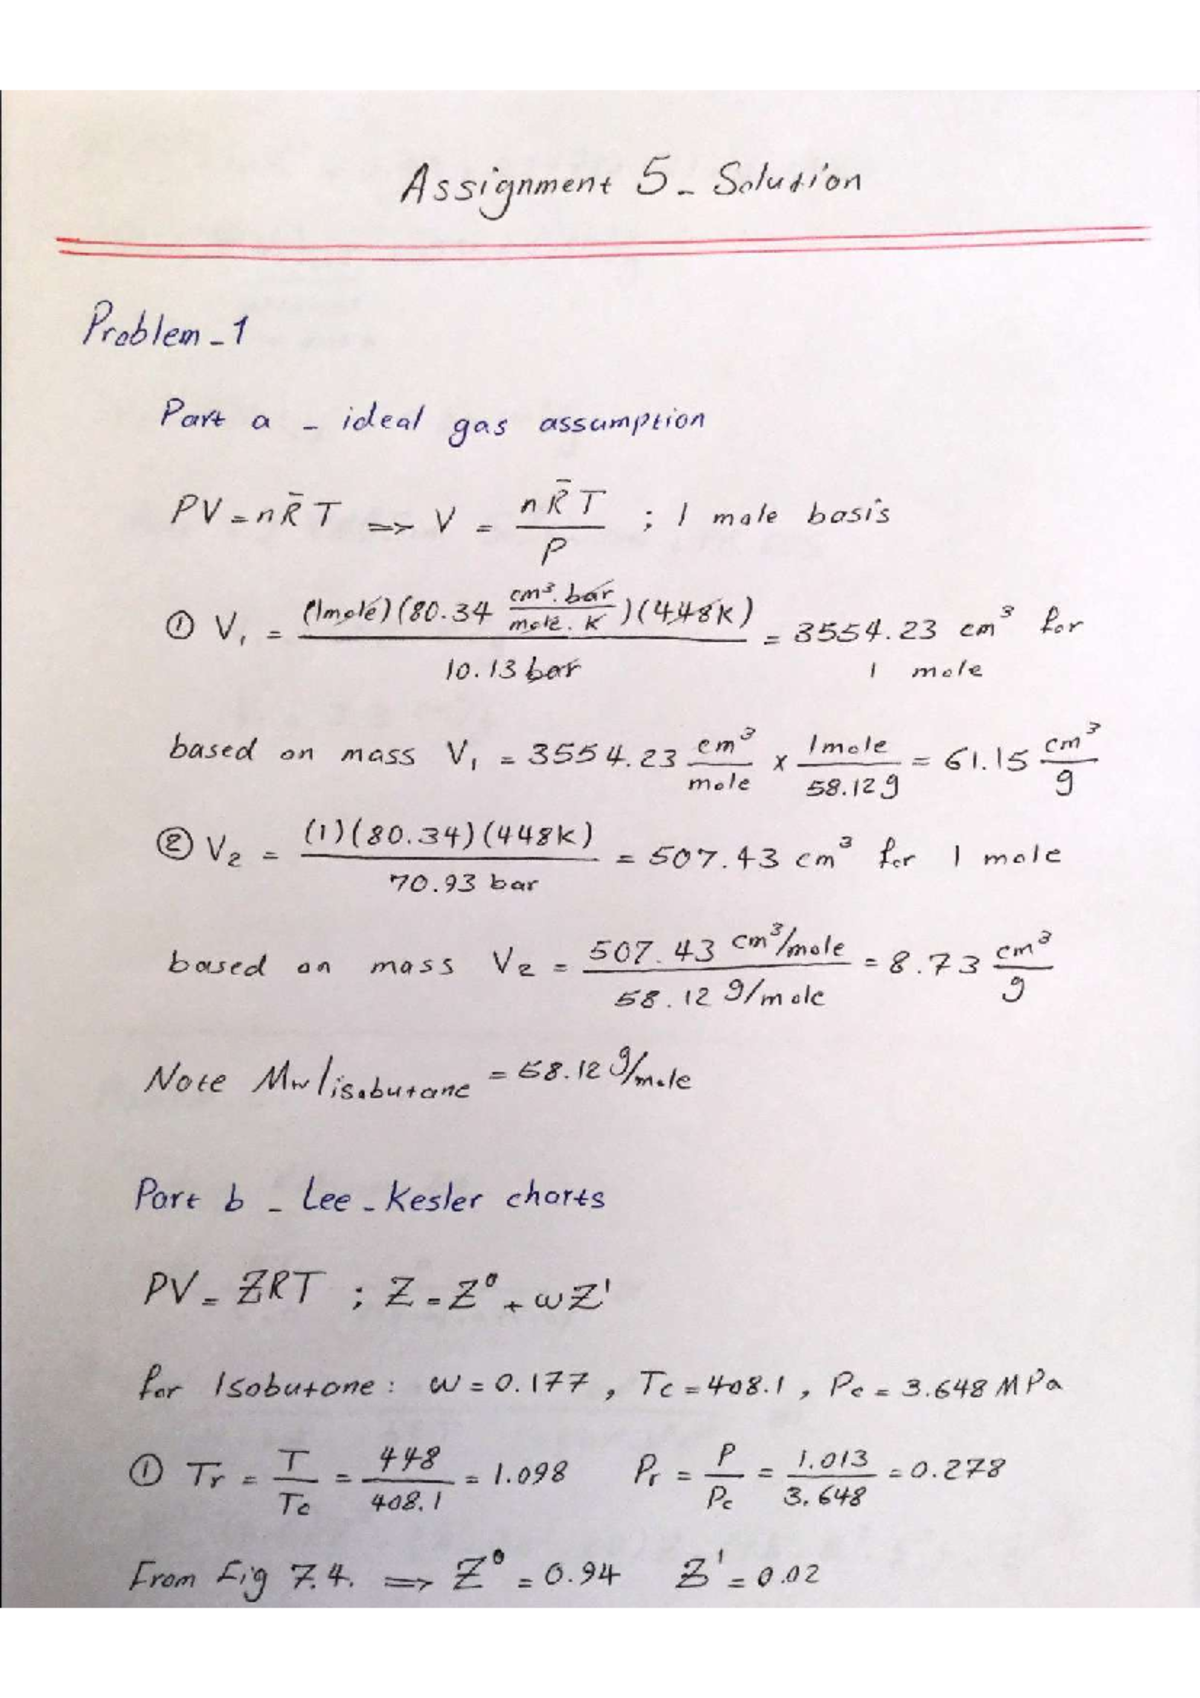 Assignment 5 - Solution
Problem - 1
Part a - ideal gas assumption
PV = nR̄T => V = nR̄T / P ; 1 mole basis
① V₁ = (1mole)(80.34 cm³.bar / mole.K)(448K) / 10.13 bar = 3554.23 cm³ for 1 mole
based on mass V₁ = 3554.23 cm³ / mole x 1mole / 58.12g = 61.15 cm³ / g
② V₂ = (1)(80.34)(448K) / 70.93 bar = 507.43 cm³ for 1 mole
based on mass V₂ = 507.43 cm³/mole / 58.12 g/mole = 8.73 cm³ / g
Note Mw/isobutane = 58.12 g/mole
Part b - Lee - Kesler charts
PV = ZRT ; Z = Z⁰ + ωZ¹
for Isobutane : ω = 0.177 , Tc = 408.1 , Pc = 3.648 MPa
① Tr = T / Tc = 448 / 408.1 = 1.098 Pr = P / Pc = 1.013 / 3.648 = 0.278
From Fig 7.4. => Z⁰ = 0.94 Z¹ = 0.02